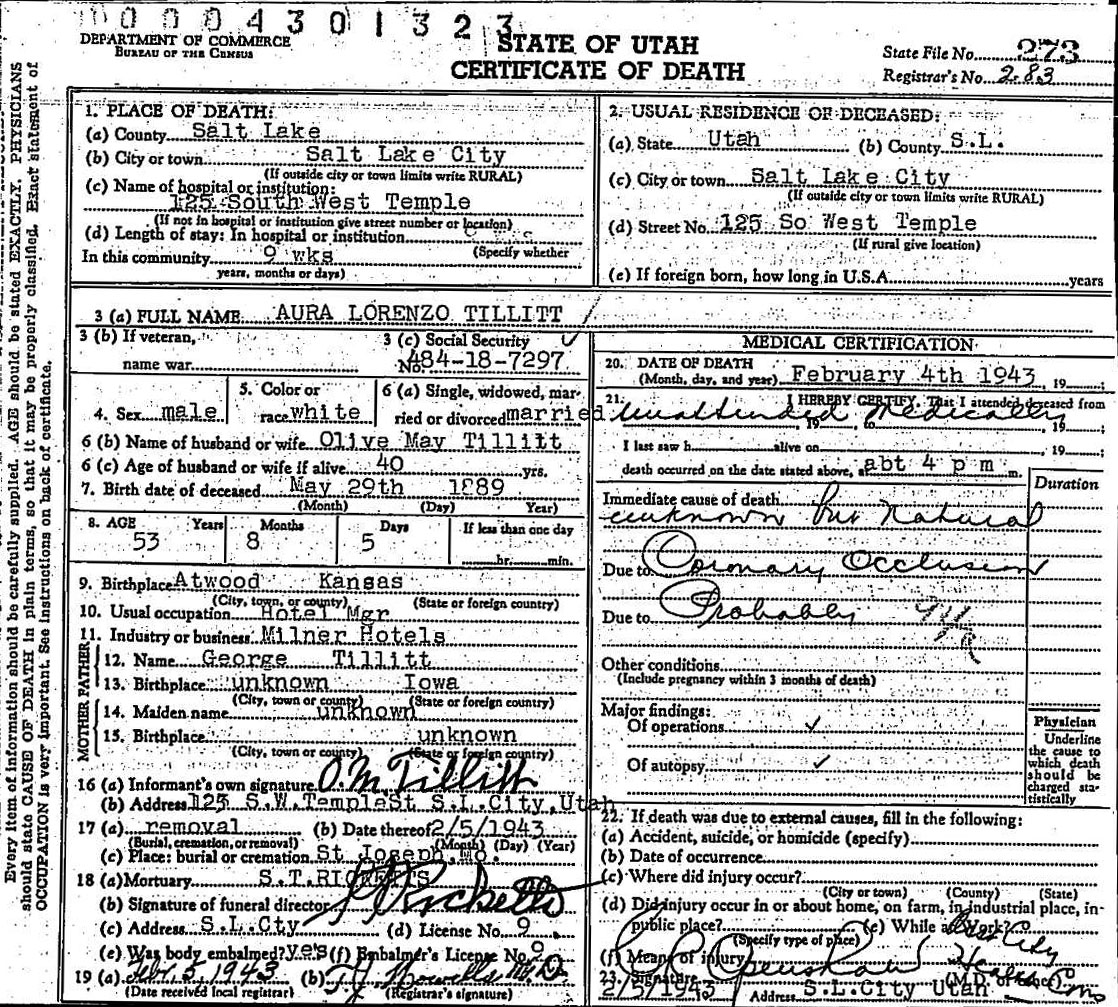 0004301323
DEPARTMENT OF COMMERCE
BUREAU OF THE CENSUS
STATE OF UTAH
CERTIFICATE OF DEATH
State File No. 273
Registrar's No. 283
Every item of information should be carefully supplied. AGE should be stated EXACTLY. PHYSICIANS
should state CAUSE OF DEATH in plain terms, so that it may be properly classified. Exact statement of
OCCUPATION is very important. See instructions on back of certificate.
1. PLACE OF DEATH:
(a) County Salt Lake
(b) City or town Salt Lake City
(If outside city or town limits write RURAL)
(c) Name of hospital or institution:
125 South West Temple
(If not in hospital or institution give street number or location)
(d) Length of stay: In hospital or institution
(Specify whether
In this community 9 wks
years, months or days)
2. USUAL RESIDENCE OF DECEASED:
(a) State Utah (b) County S.L.
(c) City or town Salt Lake City
(If outside city or town limits write RURAL)
(d) Street No. 125 So West Temple
(If rural give location)
(e) If foreign born, how long in U.S.A. years
3 (a) FULL NAME AURA LORENZO TILLITT
3 (b) If veteran,
name war
3 (c) Social Security
No. 484-18-7297
4. Sex male
5. Color or
race white
6 (a) Single, widowed, mar-
ried or divorced married
6 (b) Name of husband or wife Olive May Tillitt
6 (c) Age of husband or wife if alive 40 yrs.
7. Birth date of deceased May 29th 1889
(Month) (Day) Year)
8. AGE Years Months Days If less than one day
53 8 5 hr. min.
9. Birthplace Atwood Kansas
(City, town, or county) (State or foreign country)
10. Usual occupation Hotel Mgr
11. Industry or business Milner Hotels
FATHER
12. Name George Tillitt
13. Birthplace unknown Iowa
(City, town or county) (State or foreign country)
MOTHER
14. Maiden name unknown
15. Birthplace unknown
(City, town or county) (State or foreign country)
16 (a) Informant's own signature O.M. Tillitt
(b) Address 125 S.W.TempleSt S.L.City,Utah
17 (a) removal (b) Date thereof 2/5/1943
(Burial, cremation, or removal) (Month) (Day) (Year)
(c) Place: burial or cremation St Joseph, Mo.
18 (a) Mortuary S.T.RICKETTS
(b) Signature of funeral director Ricketts
(c) Address S.L.Cty (d) License No. 9
(e) Was body embalmed? yes (f) Embalmer's License No. 9
19 (a) Febr. 5, 1943 (b) M.D.
(Date received local registrar) (Registrar's signature)
MEDICAL CERTIFICATION
20. DATE OF DEATH
(Month, day, and year) February 4th 1943, 19 ;
21. I HEREBY CERTIFY, That I attended deceased from
Unattended Medically
, 19 , to , 19 ;
I last saw h alive on , 19 ;
death occurred on the date stated above, at abt 4 p m m.
Duration
Immediate cause of death
unknown but Natural
Due to Coronary Occlusion
Due to Probably
Other conditions
(Include pregnancy within 3 months of death)
Major findings:
Of operations ✓
Of autopsy ✓
Physician
Underline
the cause to
which death
should be
charged sta-
tistically
22. If death was due to external causes, fill in the following:
(a) Accident, suicide, or homicide (specify)
(b) Date of occurrence
(c) Where did injury occur?
(City or town) (County) (State)
(d) Did injury occur in or about home, on farm, in industrial place, in-
public place? (e) While at work?
(Specify type of place)
(f) Means of injury
23. Signature City Health Com
2/5/1943 Address S.L.City Utah